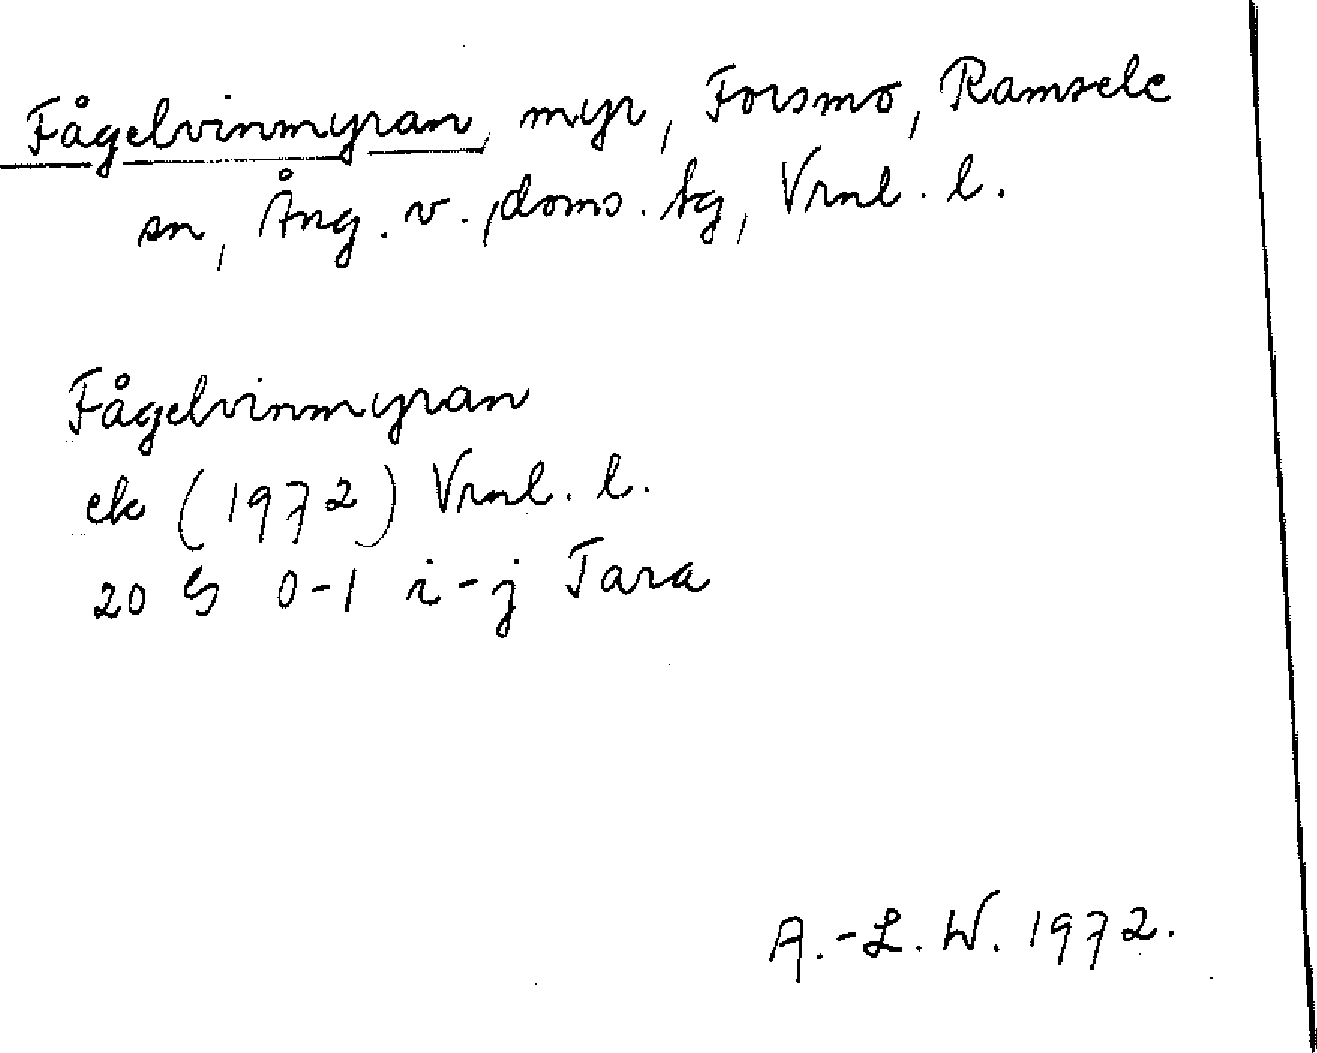 Fågelvinmyran, myr, Forsmo, Ramsele
sn, Ång. v. doms. tg, Vrnl. l.
Fågelvinmyran
ek (1972) Vrnl. l.
20 G 0-1 i-j Tara
A.-L. W. 1972.